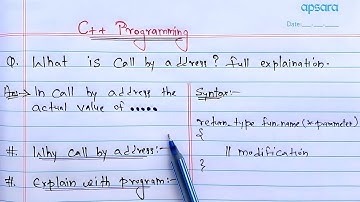 apsara
Date:
C++ Programming
Q. What is Call by address? full explaination.
Ans→ In Call by address the
actual value of .....
#. Why call by address:-
#. Explain with program:-
Syntax:-
return type fun.name(*parmeter)
{
// modification
}